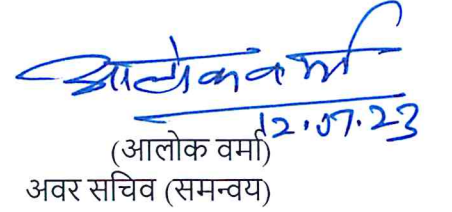 आलोक वर्मा
12.07.23
(आलोक वर्मा)
अवर सचिव (समन्वय)